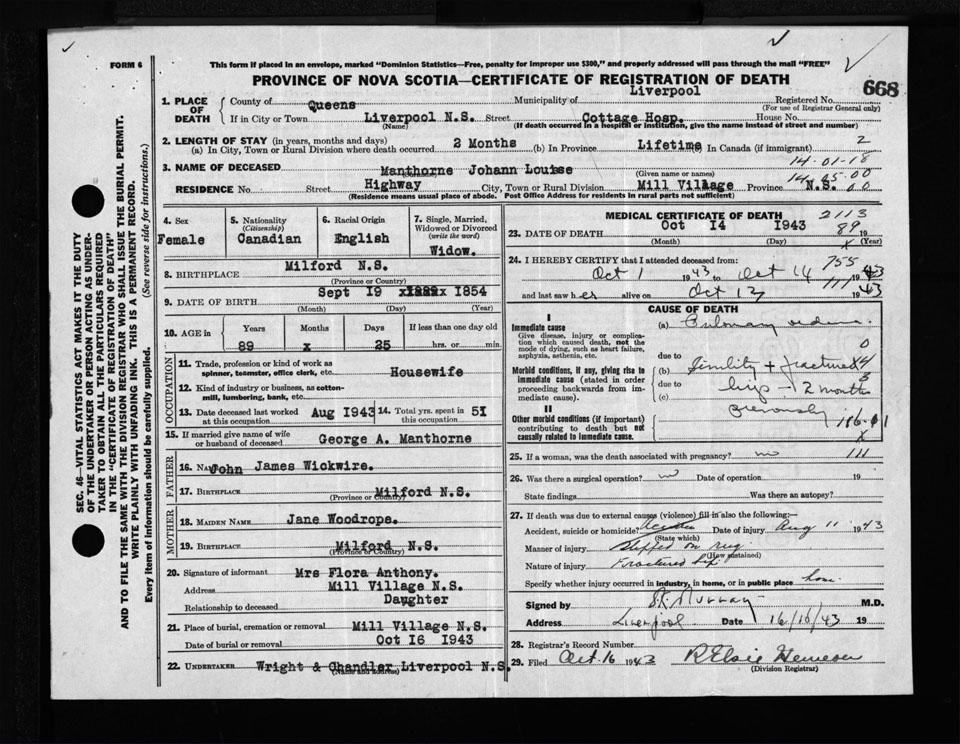 FORM 6
This form if placed in an envelope, marked "Dominion Statistics—Free, penalty for improper use $300," and properly addressed will pass through the mail "FREE"
PROVINCE OF NOVA SCOTIA—CERTIFICATE OF REGISTRATION OF DEATH
668
SEC. 46—VITAL STATISTICS ACT MAKES IT THE DUTY
OF THE UNDERTAKER OR PERSON ACTING AS UNDER-
TAKER TO OBTAIN ALL THE PARTICULARS REQUIRED
IN THE "CERTIFICATE OF REGISTRATION OF DEATH"
AND TO FILE THE SAME WITH THE DIVISION REGISTRAR WHO SHALL ISSUE THE BURIAL PERMIT.
WRITE PLAINLY WITH UNFADING INK. THIS IS A PERMANENT RECORD.
Every item of information should be carefully supplied. (See reverse side for instructions.)
1. PLACE OF DEATH County of Queens Municipality of Liverpool Registered No.
(For use of Registrar General only)
If in City or Town Liverpool N.S. Street Cottage Hosp. House No.
(Name) (If death occurred in a hospital or institution, give the name instead of street and number)
2. LENGTH OF STAY (in years, months and days)
(a) In City, Town or Rural Division where death occurred 2 Months (b) In Province Lifetime (c) In Canada (if immigrant) 2
14-01-18
3. NAME OF DECEASED Manthorne Johann Louise
(Given name or names) 14 05-00
RESIDENCE No. Street Highway City, Town or Rural Division Mill Village Province N.S. 00
(Residence means usual place of abode. Post Office Address for residents in rural parts not sufficient)
4. Sex Female
5. Nationality (Citizenship) Canadian
6. Racial Origin English
7. Single, Married, Widowed or Divorced (write the word) Widow.
8. BIRTHPLACE Milford N.S.
(Province or Country)
9. DATE OF BIRTH Sept 19 1854
(Month) (Day) (Year)
10. AGE in Years Months Days If less than one day old
89 x 25 hrs. or min.
OCCUPATION
11. Trade, profession or kind of work as spinner, teamster, office clerk, etc. Housewife
12. Kind of industry or business, as cotton-mill, lumbering, bank, etc.
13. Date deceased last worked at this occupation Aug 1943 14. Total yrs. spent in this occupation 51
15. If married give name of wife or husband of deceased George A. Manthorne
FATHER
16. Name John James Wickwire.
17. Birthplace Milford N.S.
(Province or Country)
MOTHER
18. Maiden Name Jane Woodrope.
19. Birthplace Milford N.S.
(Province or Country)
20. Signature of informant Mrs Flora Anthony.
Address Mill Village N.S.
Relationship to deceased Daughter
21. Place of burial, cremation or removal Mill Village N.S.
Date of burial or removal Oct 16 1943
22. Undertaker Wright & Chandler Liverpool N.S.
(Name and address)
MEDICAL CERTIFICATE OF DEATH 2113
23. DATE OF DEATH Oct 14 1943 89 19
(Month) (Day) x (Year)
24. I HEREBY CERTIFY that I attended deceased from: 755
Oct 1 1943 to Oct 14 1943
111
and last saw her alive on Oct 12 1943
CAUSE OF DEATH
I
Immediate cause
Give disease, injury or complication which caused death, not the mode of dying, such as heart failure, asphyxia, asthenia, etc.
(a) Pulmonary oedema
0
due to
Morbid conditions, if any, giving rise to immediate cause (stated in order proceeding backwards from immediate cause).
(b) Senility + fractured x4
due to
8
(c) hip - 2 months
previously
II
Other morbid conditions (if important) contributing to death but not causally related to immediate cause.
186-01
x
25. If a woman, was the death associated with pregnancy? no 111
26. Was there a surgical operation? no Date of operation 19
State findings Was there an autopsy?
27. If death was due to external causes (violence) fill in also the following:—
Accident, suicide or homicide? Date of injury Aug 11 1943
(State which)
Manner of injury Slipped on rug
(How sustained)
Nature of injury Fractured hip
Specify whether injury occurred in industry, in home, or in public place home
Signed by Murray M.D.
Address Liverpool Date 16/10/43 19
28. Registrar's Record Number
29. Filed Oct. 16 1943 R Elsie
(Division Registrar)